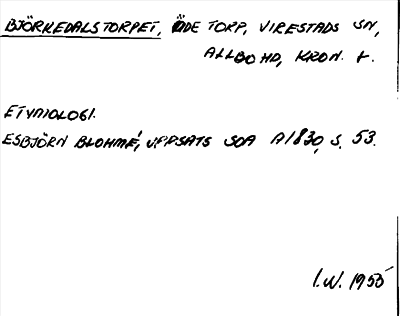 BJÖRKEDALSTORPET, ÖDE TORP, VIRESTADS SN,
ALLBO HD, KRON. L.
ETYMOLOGI.
ESBJÖRN BLOHMÉ, UPPSATS SOA A1830, S. 53.
I.W. 1955